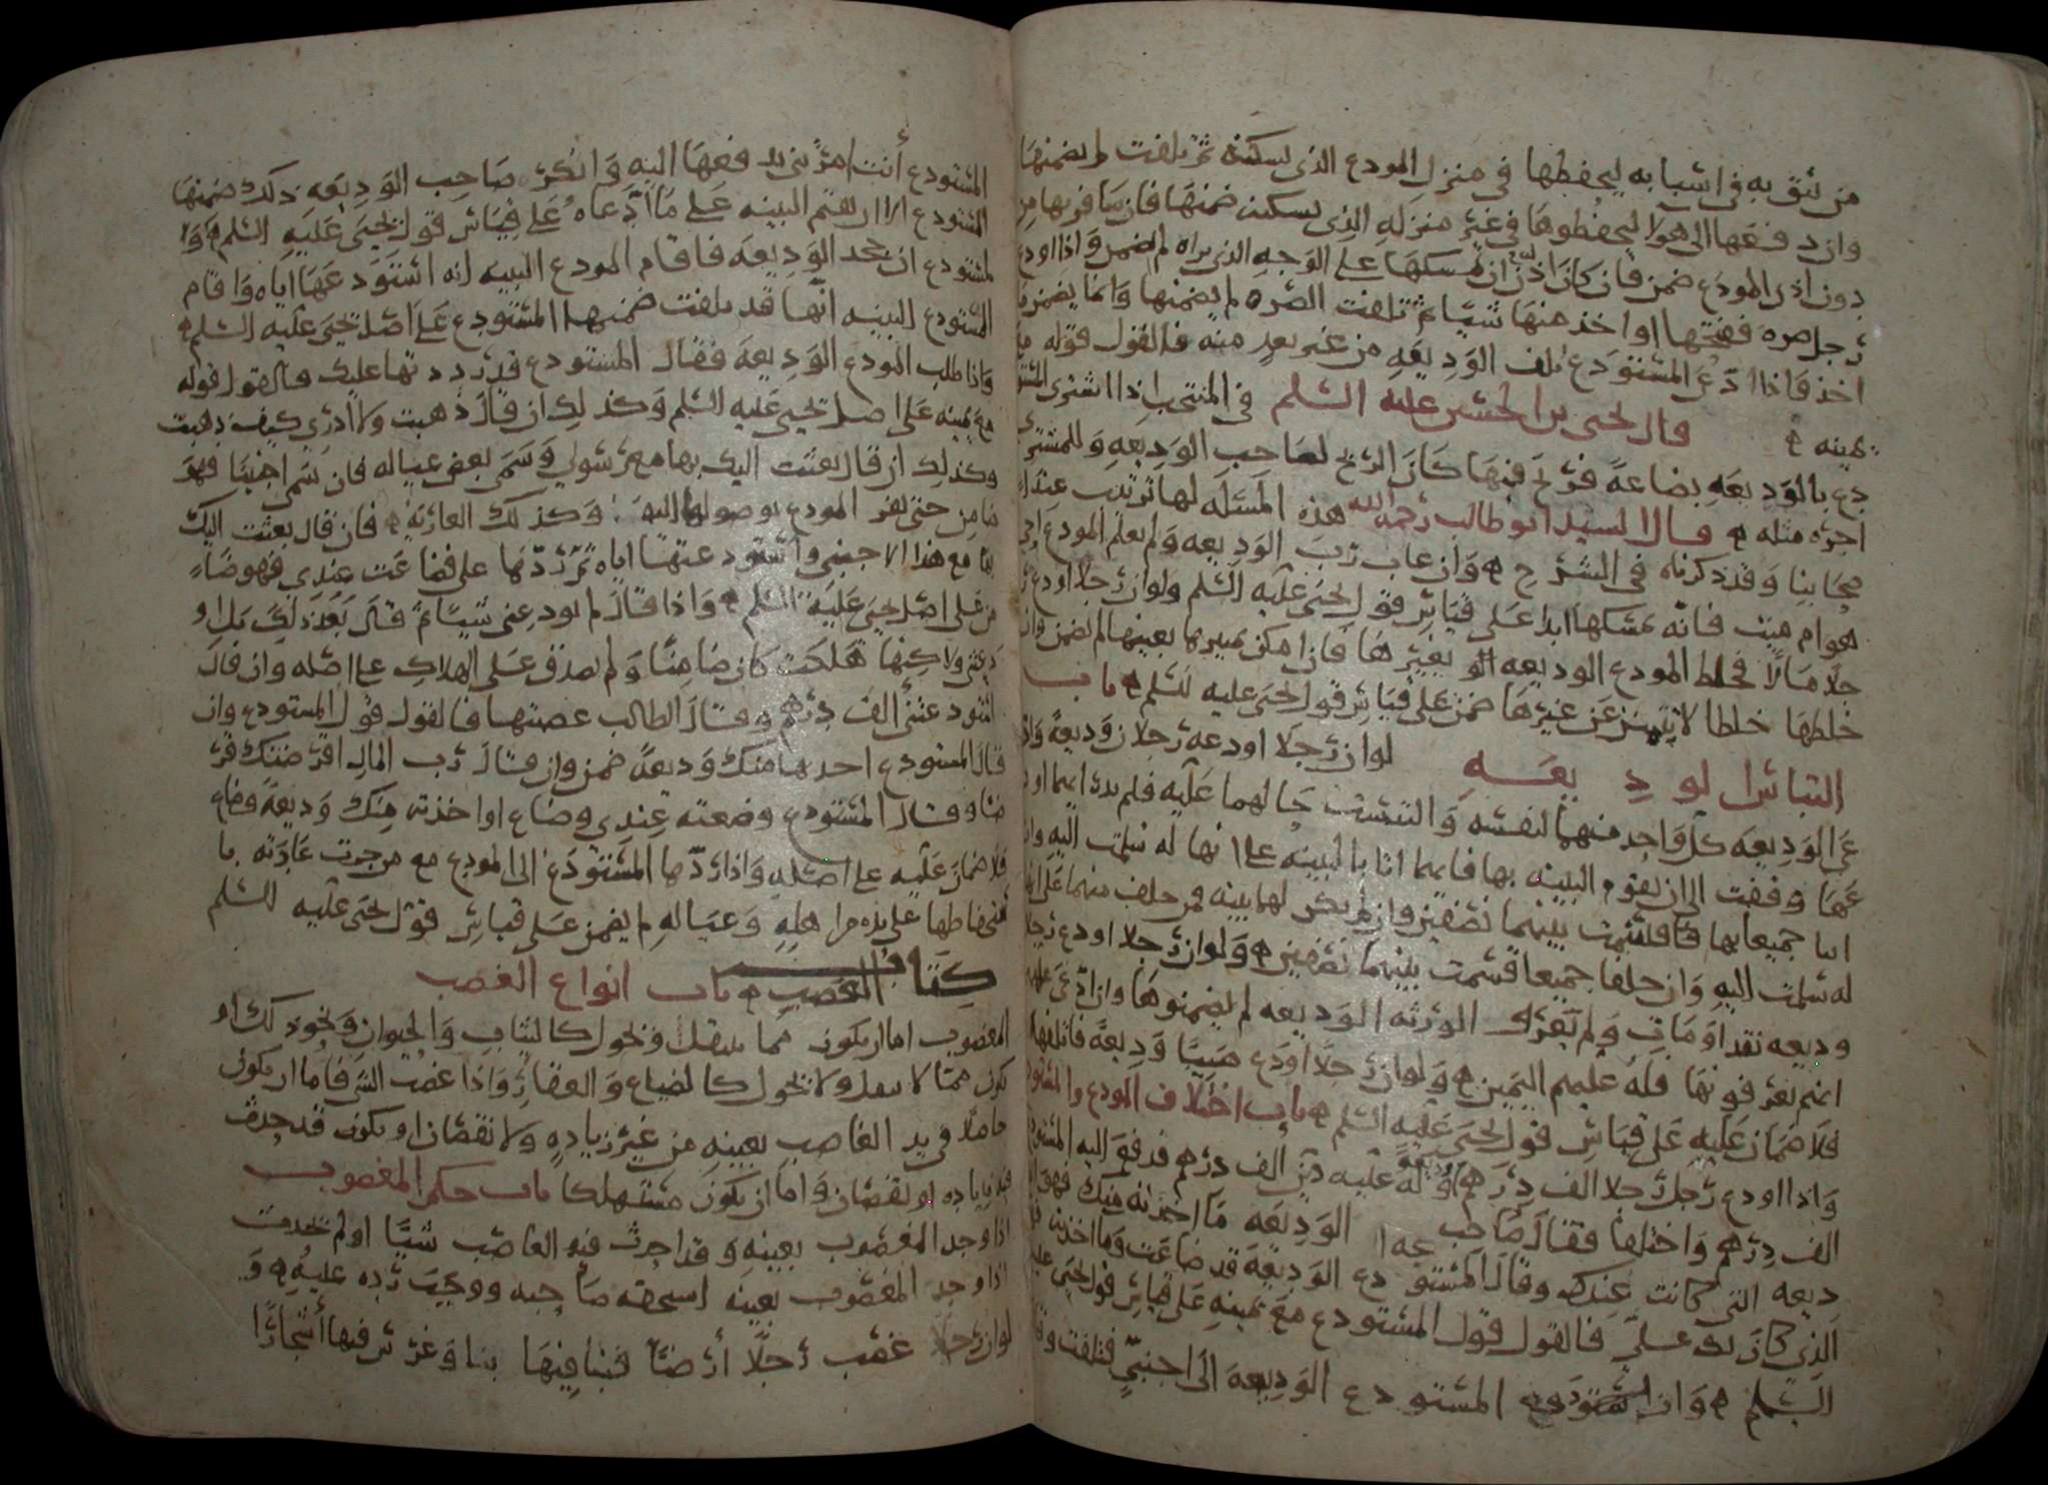 من يثق به في اشبابه ليحفظها في منزل المودع الذي يسكنه ثم تلفت لم يضمنها
وان دفعها الى هولا ليحفظوها في غير منزله الذي يسكنه ضمنها فان سافر بها من
دون اذن المودع ضمن فان كان اذن ان يمسكها على الوجه الذي يراه لم يضمن واذا اودع
رجل صره ففتحها او اخذ منها شيا ثم تلفت الصره لم يضمنها وانما يضمن ما
اخذ فاذا ادعى المستودع تلف الوديعه من غير تعد منه فالقول قوله مع
يمينه قال يحيى بن الحسين عليه السلم في المنتخب اذا اشترى المستو
دع بالوديعه بضاعة فربح فيها كان الربح لصاحب الوديعه وللمشتري
اجره مثله قال السيد ابو طالب رحمه الله هذه المسئله لها ترتيب عند
صحابنا وقد ذكرناه في الشرح وان غاب رب الوديعه ولم يعلم المودع احي
هو ام ميت فانه يمسكها ابدا على قياس قول يحيى عليه السلم ولو ان رجلا اودع ر
جلا مالا فخلط المودع الوديعه بغيرها فان امكن تمييزها بعينها لم يضمن وان
خلطها خلطا لا يتميز عن غيرها ضمن على قياس قول يحيى عليه السلم باب
التباس الوديعه لو ان رجلا اودعه رجلان وديعة واد
عى الوديعه كل واحد منهما لنفسه والتبست حالهما عليه فلم يدر ايهما اود
عها وقفت الى ان تقوم البينه بها فايهما اتا بالبينه على انها له سلمت اليه وان
اتيا جميعا بها فاقتسمت بينهما نصفين وان لم يكن لهما بينه فمن حلف منهما على انها
له سلمت اليه وان حلفا جميعا قسمت بينهما نصفين ولو ان رجلا اودع رجلا
وديعه نقدا ومات ولم تعرف الورثه الوديعه لم يضمنوها وان ادعى عليهم
انهم يعرفونها فله عليهم اليمين ولو ان رجلا اودع صبيا وديعة فاتلفها
فلا ضمان عليه على قياس قول يحيى عليه السلم باب اختلاف المودع والمستودع
واذا اودع رجل رجلا الف درهم وديعة وله عليه دين الف درهم فدفع اليه المستودع
الف درهم واختلفا فقال صاحب الوديعه ما اخذته منك فهو
ديعه التي كانت عندك وقال المستودع الوديعه قد ضاعت وما اخذته
الذي كان لك علي فالقول قول المستودع مع يمينه على قياس قول يحيى عليه
السلم وان المستودع الوديعه الى اجنبي فتلفت وقال
المستودع أنت امرتني بدفعها اليه وانكر صاحب الوديعه ذلك ضمنها
المستودع الا ان يقيم البينه على ما ادعاه على قياس قول يحيى عليه السلم
لمستودع ان جحد الوديعه فاقام المودع البينه انه استودعها اياه واقام
المستودع البينه انها قد تلفت ضمنها المستودع على اصل يحيى عليه السلم
واذا طلب المودع الوديعه فقال المستودع قد رددتها عليك فالقول قوله
مع يمينه على اصل يحيى عليه السلم وكذلك ان قال ذهبت ولا ادري كيف ذهبت
وكذلك ان قال بعثت اليك بها مع رسولي وسمى بعض عياله فان سمى اجنبيا فهو
ضامن حتى يقر المودع بوصولها اليه وكذلك العاريه فان قال بعثت اليك
بها مع هذا الاجنبي واستودعتها اياه ثم ردها علي فضاعت عندي فهو ضا
من على اصل يحيى عليه السلم واذا قال لم تودعني شيا ثم قال بعد ذلك بل او
دعتني ولاكنها هلكت كان ضامنا ولم يصدق على الهلاك على اصله وان قال
استودعتني ألف درهم وقال الطالب غصبتها فالقول قول المستودع وان
قال المستودع اخذتها منك وديعة ضمن وان قال رب المال اقرضتك قر
ضا وقال المستودع وضعته عندي وضاع او اخذته منك وديعة وضاع
فلا ضمان عليه على اصله واذا ردها المستودع الى المودع مع من جرت عادته با
نحفاظها على يده من اهله وعياله لم يضمن على قياس قول يحيى عليه السلم
كتاب الغصب باب انواع الغصب
المغصوب اما ان يكون مما ينقل ويحول كالثياب والحيوان ونحو ذلك او
يكون مما لا ينقل ولا يحول كالضياع والعقار واذا غصب الشي فاما ان يكون
حاصلا في يد الغاصب بعينه من غير زياده ولا نقصان او يكون قد حدث
فيه زياده او نقصان واما ان يكون مستهلكا باب حكم المغصوب
اذا وجد المغصوب بعينه وقد احدث فيه الغاصب شيا او لم يحدث
اذا وجد المغصوب بعينه استحقه صاحبه ووجب رده عليه و
لو ان رجلا غصب رجلا أرضا فبنا فيها بنا وغرس فيها أشجارا